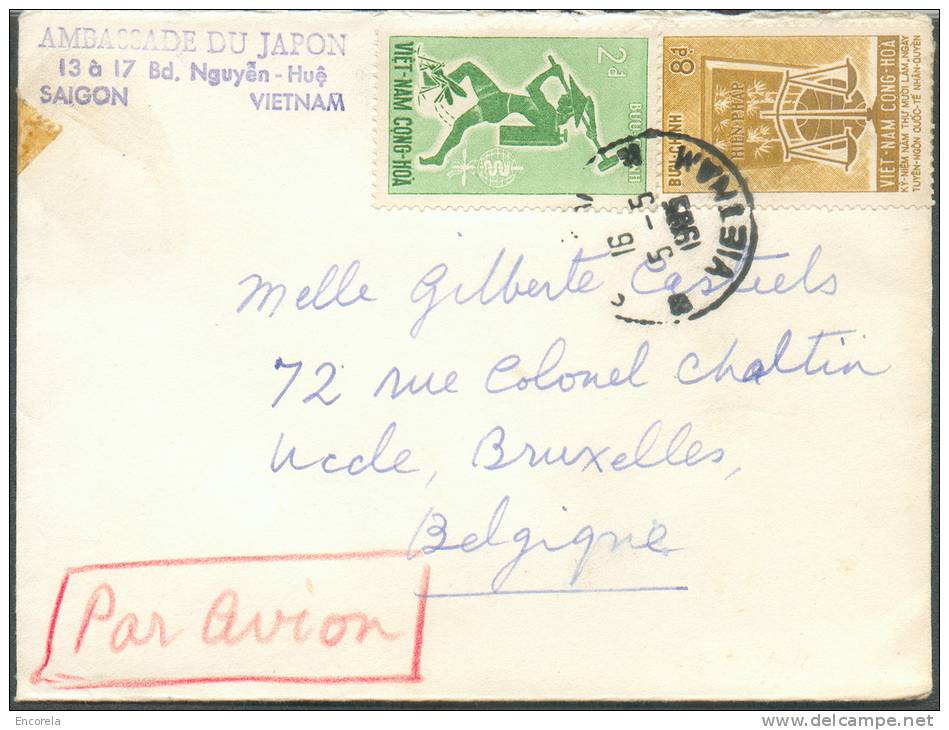 AMBASSADE DU JAPON
13 à 17 Bd. Nguyễn - Huệ
SAIGON VIETNAM
2đ
BƯU
NH
VIỆT-NAM CỘNG-HÒA
8đ
BƯU-CHÍNH
HIẾN-PHÁP
VIỆT-NAM CỘNG-HÒA
KỶ-NIỆM NĂM THỨ MƯỜI LĂM, NGÀY
TUYÊN-NGÔN QUỐC-TẾ NHÂN-QUYỀN
VIETNAM
16
5-5
Melle Gilberte Castiels
72 rue Colonel Chaltin
Uccle, Bruxelles,
Belgique
Par Avion
Encorela
www.delcampe.net